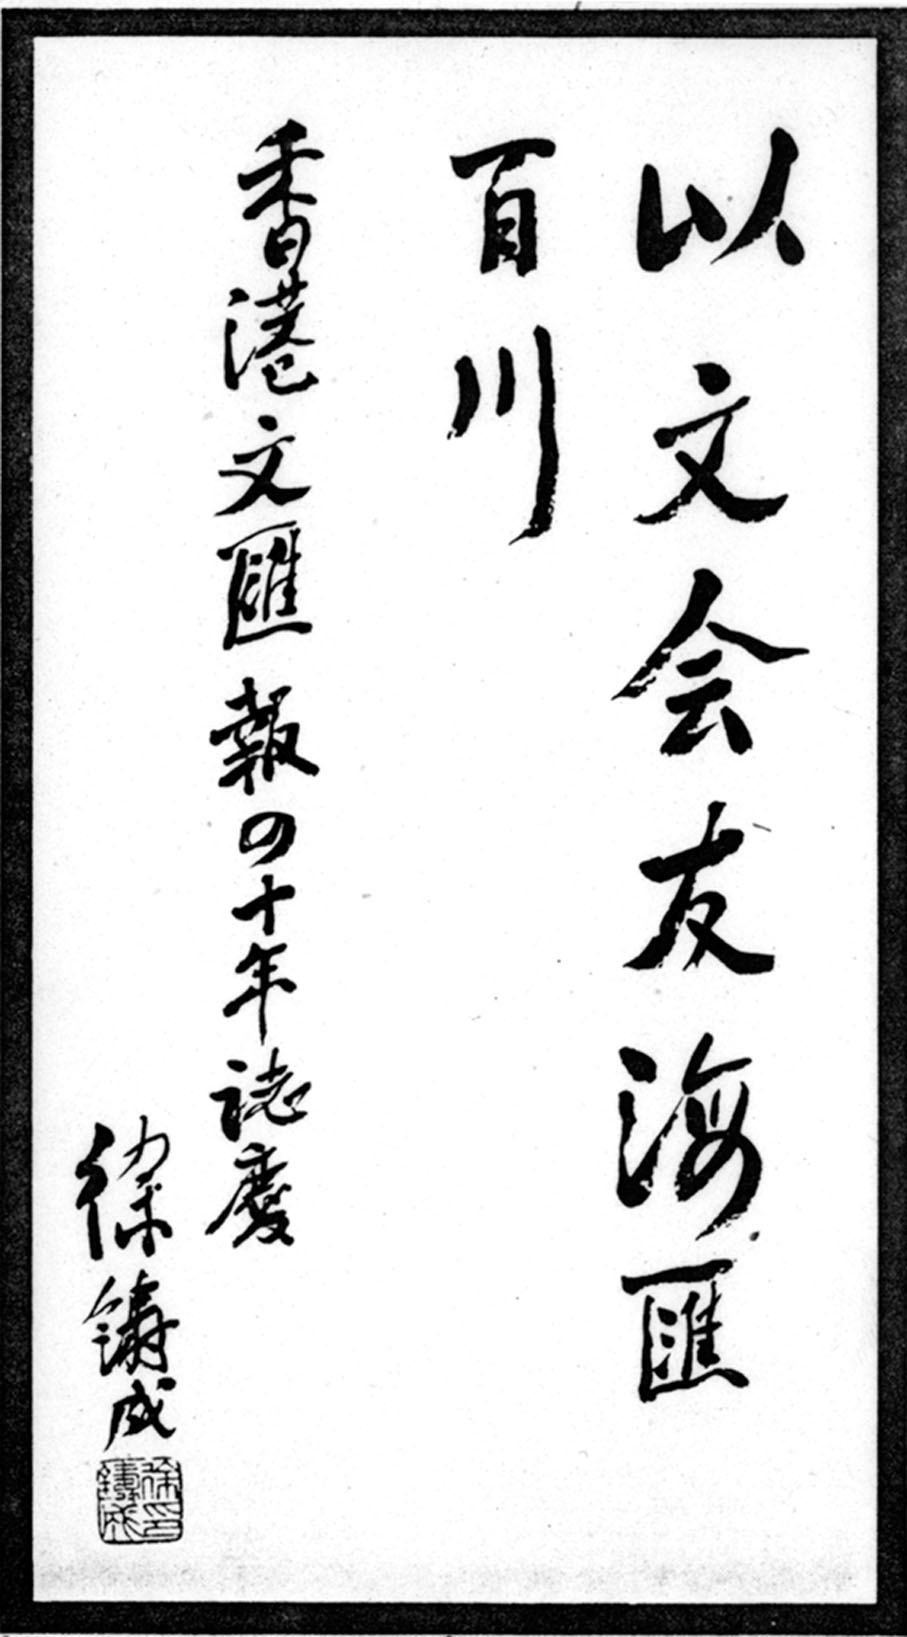 以文会友海匯
百川
香港文匯報四十年誌慶
徐鑄成
徐印鑄成